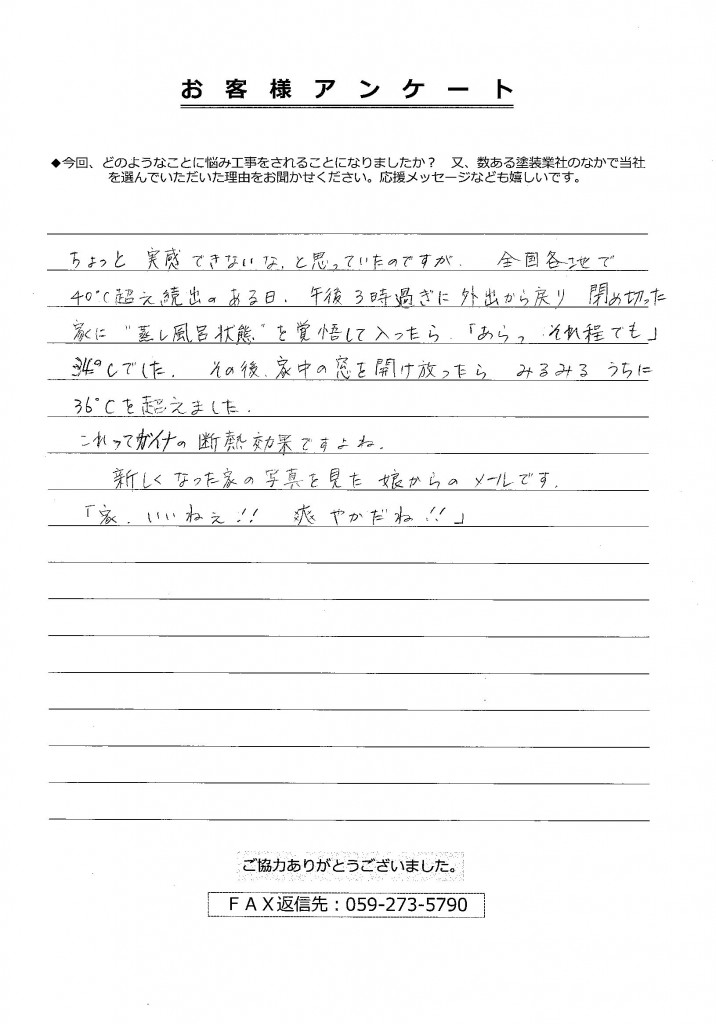 お客様アンケート
◆今回、どのようなことに悩み工事をされることになりましたか？　又、数ある塗装業社のなかで当社
を選んでいただいた理由をお聞かせください。応援メッセージなども嬉しいです。
ちょっと 実感できないな、と思っていたのですが、 全国各地で
40℃超え続出のある日、午後3時過ぎに外出から戻り 閉め切った
家に "蒸し風呂状態" を覚悟して入ったら、「あらっ、それ程でも」
34℃でした。 その後、家中の窓を開け放ったら みるみる うちに
36℃を超えました。
これってガイナの断熱効果ですよね。
新しくなった家の写真を見た 娘からのメールです。
「家、いいねぇ!! 爽やかだね!!」
ご協力ありがとうございました。
ＦＡＸ返信先：059-273-5790